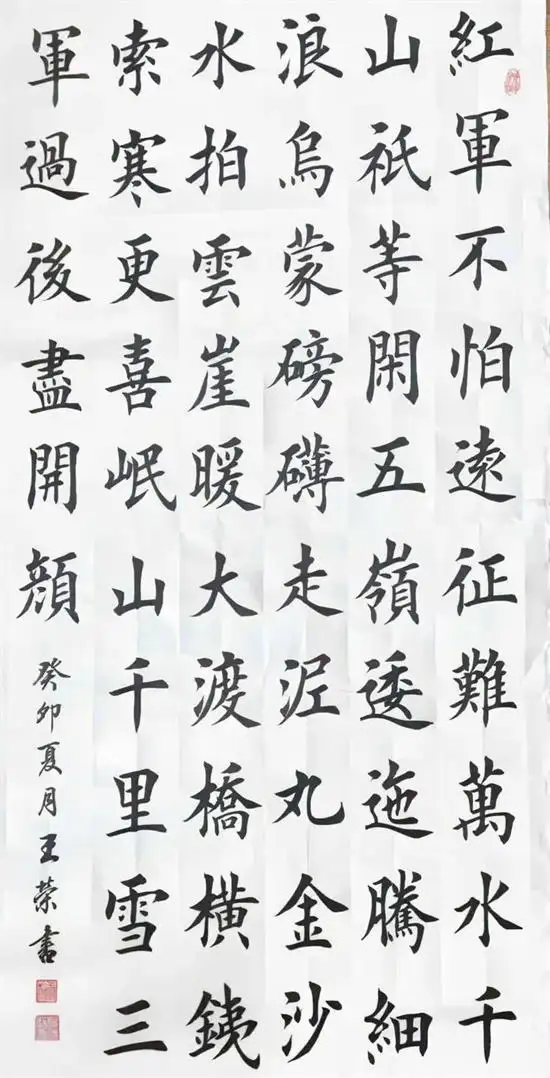 紅軍不怕遠征難萬水千
山祇等閑五嶺逶迤騰細
浪烏蒙磅礴走泥丸金沙
水拍雲崖暖大渡橋橫銕
索寒更喜岷山千里雪三
軍過後盡開顔
癸卯夏月王榮書